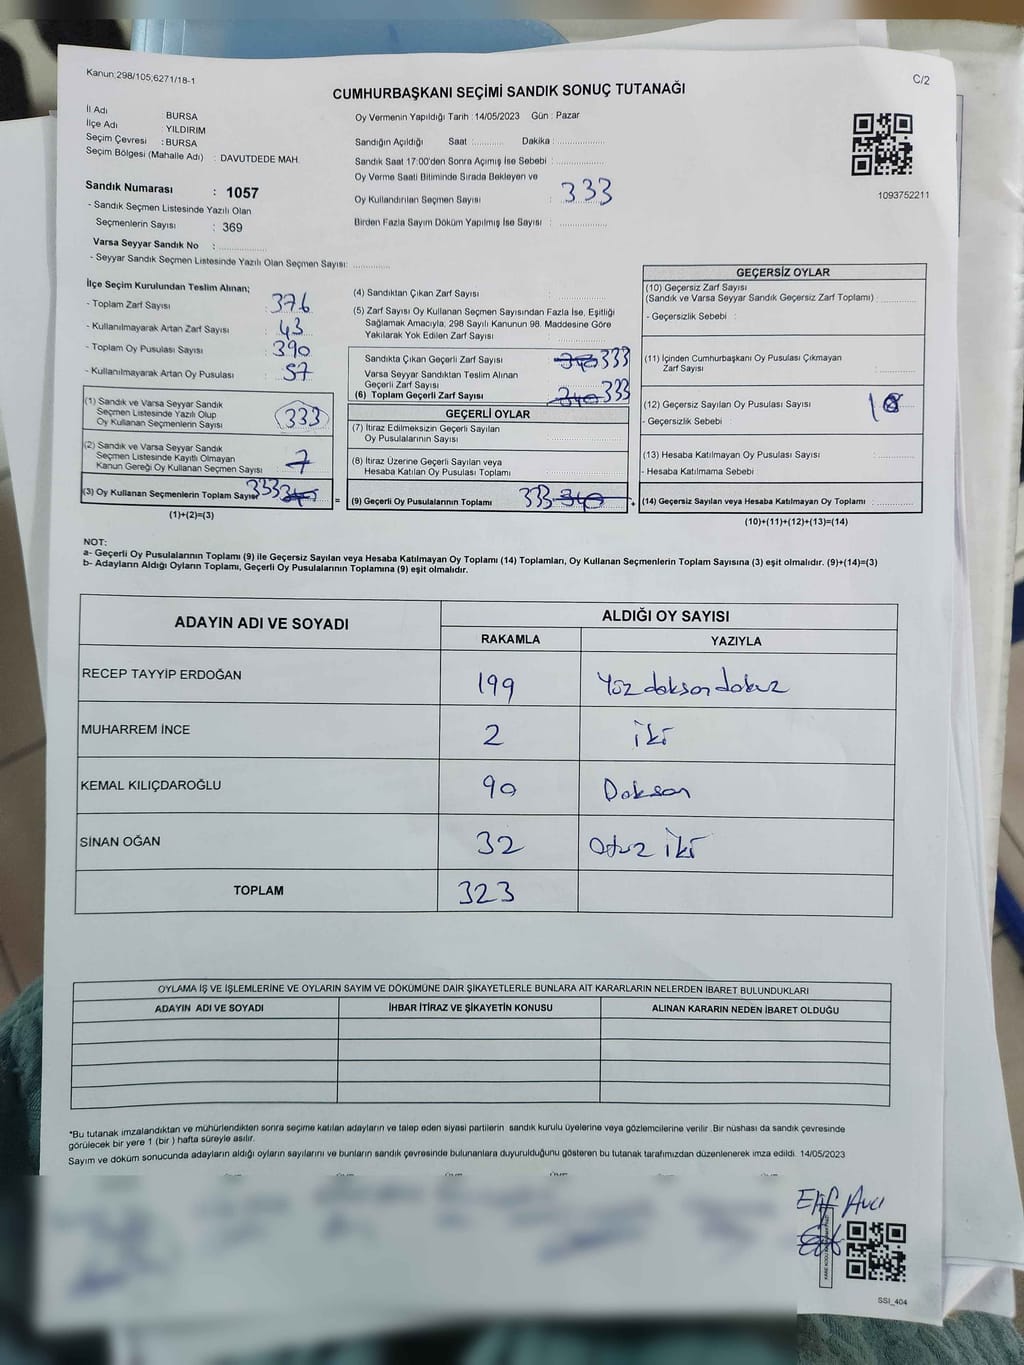 Kanun;298/105,6271/18-1
C/2
CUMHURBAŞKANI SEÇİMİ SANDIK SONUÇ TUTANAĞI
İl Adı BURSA
İlçe Adı YILDIRIM
Seçim Çevresi : BURSA
Seçim Bölgesi (Mahalle Adı) : DAVUTDEDE MAH.
Sandık Numarası : 1057
- Sandık Seçmen Listesinde Yazılı Olan
Seçmenlerin Sayısı : 369
Varsa Seyyar Sandık No : ..............
- Seyyar Sandık Seçmen Listesinde Yazılı Olan Seçmen Sayısı: ............
Oy Vermenin Yapıldığı Tarih : 14/05/2023 Gün : Pazar
Sandığın Açıldığı Saat :........... Dakika :................
Sandık Saat 17:00'den Sonra Açımış İse Sebebi :................
Oy Verme Saati Bitiminde Sırada Bekleyen ve
Oy Kullandırılan Seçmen Sayısı : 333
Birden Fazla Sayım Döküm Yapılmış İse Sayısı : ................
1093752211
İlçe Seçim Kurulundan Teslim Alınan;
- Toplam Zarf Sayısı : 376
- Kullanılmayarak Artan Zarf Sayısı : 43
- Toplam Oy Pusulası Sayısı : 390
- Kullanılmayarak Artan Oy Pusulası : 57
(1) Sandık ve Varsa Seyyar Sandık
Seçmen Listesinde Yazılı Olup
Oy Kullanan Seçmenlerin Sayısı : 333
(2) Sandık ve Varsa Seyyar Sandık
Seçmen Listesinde Kayıtlı Olmayan
Kanun Gereği Oy Kullanan Seçmen Sayısı : 7
(3) Oy Kullanan Seçmenlerin Toplam Sayısı 333 =
(1)+(2)=(3)
(4) Sandıktan Çıkan Zarf Sayısı :
(5) Zarf Sayısı Oy Kullanan Seçmen Sayısından Fazla İse, Eşitliği
Sağlamak Amacıyla; 298 Sayılı Kanunun 98. Maddesine Göre
Yakılarak Yok Edilen Zarf Sayısı :
Sandıkta Çıkan Geçerli Zarf Sayısı 340 333
Varsa Seyyar Sandıktan Teslim Alınan
Geçerli Zarf Sayısı
(6) Toplam Geçerli Zarf Sayısı 340 333
GEÇERLİ OYLAR
(7) İtiraz Edilmeksizin Geçerli Sayılan
Oy Pusulalarının Sayısı
(8) İtiraz Üzerine Geçerli Sayılan veya
Hesaba Katılan Oy Pusulası Toplamı
(9) Geçerli Oy Pusulalarının Toplamı 333 340 +
GEÇERSİZ OYLAR
(10) Geçersiz Zarf Sayısı
(Sandık ve Varsa Seyyar Sandık Geçersiz Zarf Toplamı) :
- Geçersizlik Sebebi :
(11) İçinden Cumhurbaşkanı Oy Pusulası Çıkmayan
Zarf Sayısı :
(12) Geçersiz Sayılan Oy Pusulası Sayısı 10
- Geçersizlik Sebebi
(13) Hesaba Katılmayan Oy Pusulası Sayısı :
- Hesaba Katılmama Sebebi
(14) Geçersiz Sayılan veya Hesaba Katılmayan Oy Toplamı :
(10)+(11)+(12)+(13)=(14)
NOT:
a- Geçerli Oy Pusulalarının Toplamı (9) ile Geçersiz Sayılan veya Hesaba Katılmayan Oy Toplamı (14) Toplamları, Oy Kullanan Seçmenlerin Toplam Sayısına (3) eşit olmalıdır. (9)+(14)=(3)
b- Adayların Aldığı Oyların Toplamı, Geçerli Oy Pusulalarının Toplamına (9) eşit olmalıdır.
ADAYIN ADI VE SOYADI ALDIĞI OY SAYISI
RAKAMLA YAZIYLA
RECEP TAYYİP ERDOĞAN 199 Yüz doksan dokuz
MUHARREM İNCE 2 iki
KEMAL KILIÇDAROĞLU 90 Doksan
SİNAN OĞAN 32 Otuz iki
TOPLAM 323
OYLAMA İŞ VE İŞLEMLERİNE VE OYLARIN SAYIM VE DÖKÜMÜNE DAİR ŞİKAYETLERLE BUNLARA AİT KARARLARIN NELERDEN İBARET BULUNDUKLARI
ADAYIN ADI VE SOYADI İHBAR İTİRAZ VE ŞİKAYETİN KONUSU ALINAN KARARIN NEDEN İBARET OLDUĞU
*Bu tutanak imzalandıktan ve mühürlendikten sonra seçime katılan adayların ve talep eden siyasi partilerin sandık kurulu üyelerine veya gözlemcilerine verilir .Bir nüshası da sandık çevresinde
görülecek bir yere 1 (bir ) hafta süreyle asılır.
Sayım ve döküm sonucunda adayların aldığı oyların sayılarını ve bunların sandık çevresinde bulunanlara duyurulduğunu gösteren bu tutanak tarafımızdan düzenlenerek imza edildi. 14/05/2023
Elif Avcı
SSI_404